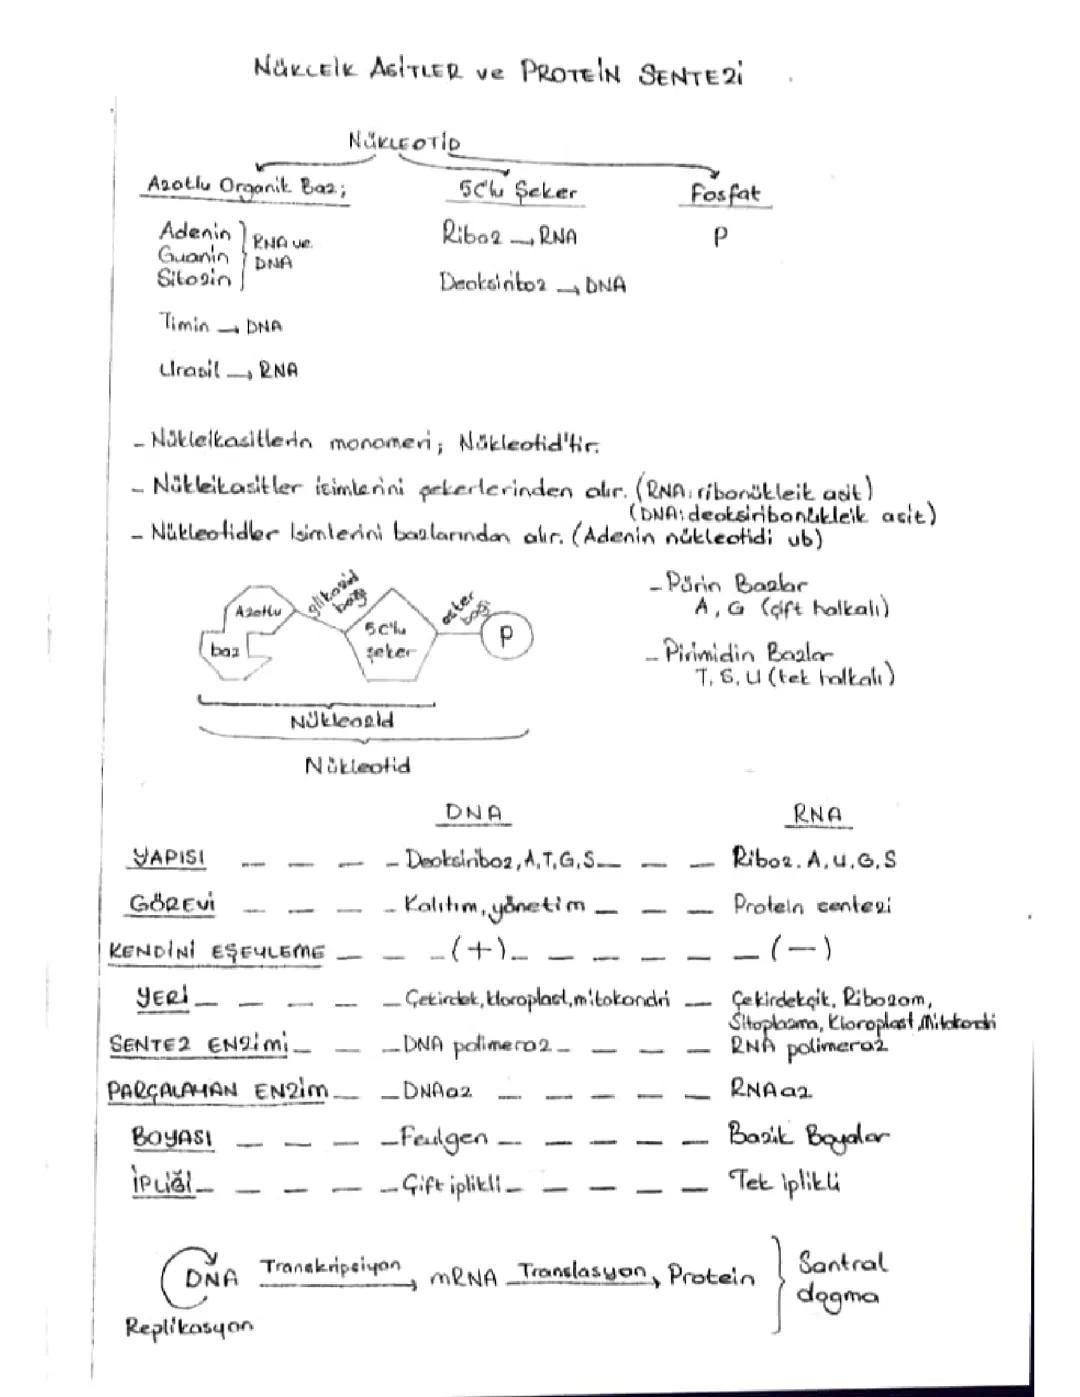 NÜKLEİK ASİTLER ve PROTEİN SENTEZİ
NÜKLEOTİD
Azotlu Organik Baz;
5C'lu Şeker
Fosfat
Adenin
Guanin
Sitozin
RNA ve
DNA
Riboz → RNA
P
Deoksiriboz → DNA
Timin → DNA
Urasil → RNA
- Nükleikasitlerin monomeri; Nükleotid'tir.
- Nükleikasitler isimlerini şekerlerinden alır. (RNA: ribonükleik asit)
(DNA: deoksiribonükleik asit)
- Nükleotidler isimlerini bazlarından alır. (Adenin nükleotidi vb)
Azotlu
baz
glikozid
bağı
5C'lu
şeker
ester
bağı
P
Nükleozid
Nükleotid
- Pürin Bazlar
A, G (çift halkalı)
- Pirimidin Bazlar
T, S, U (tek halkalı)
DNA RNA
YAPISI - - - - Deoksiriboz, A,T,G,S - - - Riboz. A,U,G,S
GÖREVİ - - - - Kalıtım, yönetim - - - Protein sentezi
KENDİNİ EŞEYLEME - - - (+) - - - - - - (-)
YERİ - - - - - Çekirdek, kloroplast, mitokondri - Çekirdekçik, Ribozom,
Sitoplazma, Kloroplast, Mitokondri
SENTEZ ENZİMİ - - - - DNA polimeraz - - - - - RNA polimeraz
PARÇALAYAN ENZİM - - DNAaz - - - - - RNAaz
BOYASI - - - - Feulgen - - - - - Bazik Boyalar
İPLİĞİ - - - - - Çift iplikli - - - - - Tek iplikli
DNA Transkripsiyon → mRNA Translasyon → Protein
Santral
dogma
Replikasyon